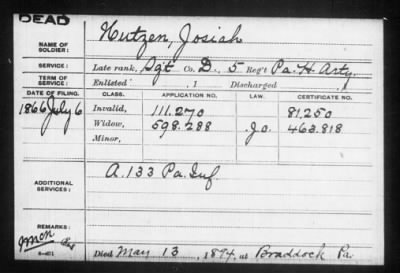 DEAD
NAME OF SOLDIER: Hutzen, Josiah
SERVICE: Late rank, Sgt Co. D, 5 Reg't Pa. H. Arty.
TERM OF SERVICE: Enlisted , 1 Discharged , 1
DATE OF FILING. CLASS. APPLICATION NO. LAW. CERTIFICATE NO.
1866 July 6 Invalid, 111.270 81.250
Widow, 598.288 J.O. 463.818
Minor,
ADDITIONAL SERVICES: A. 133 Pa. Inf
REMARKS:
Died May 13, 1894, at Braddock Pa.